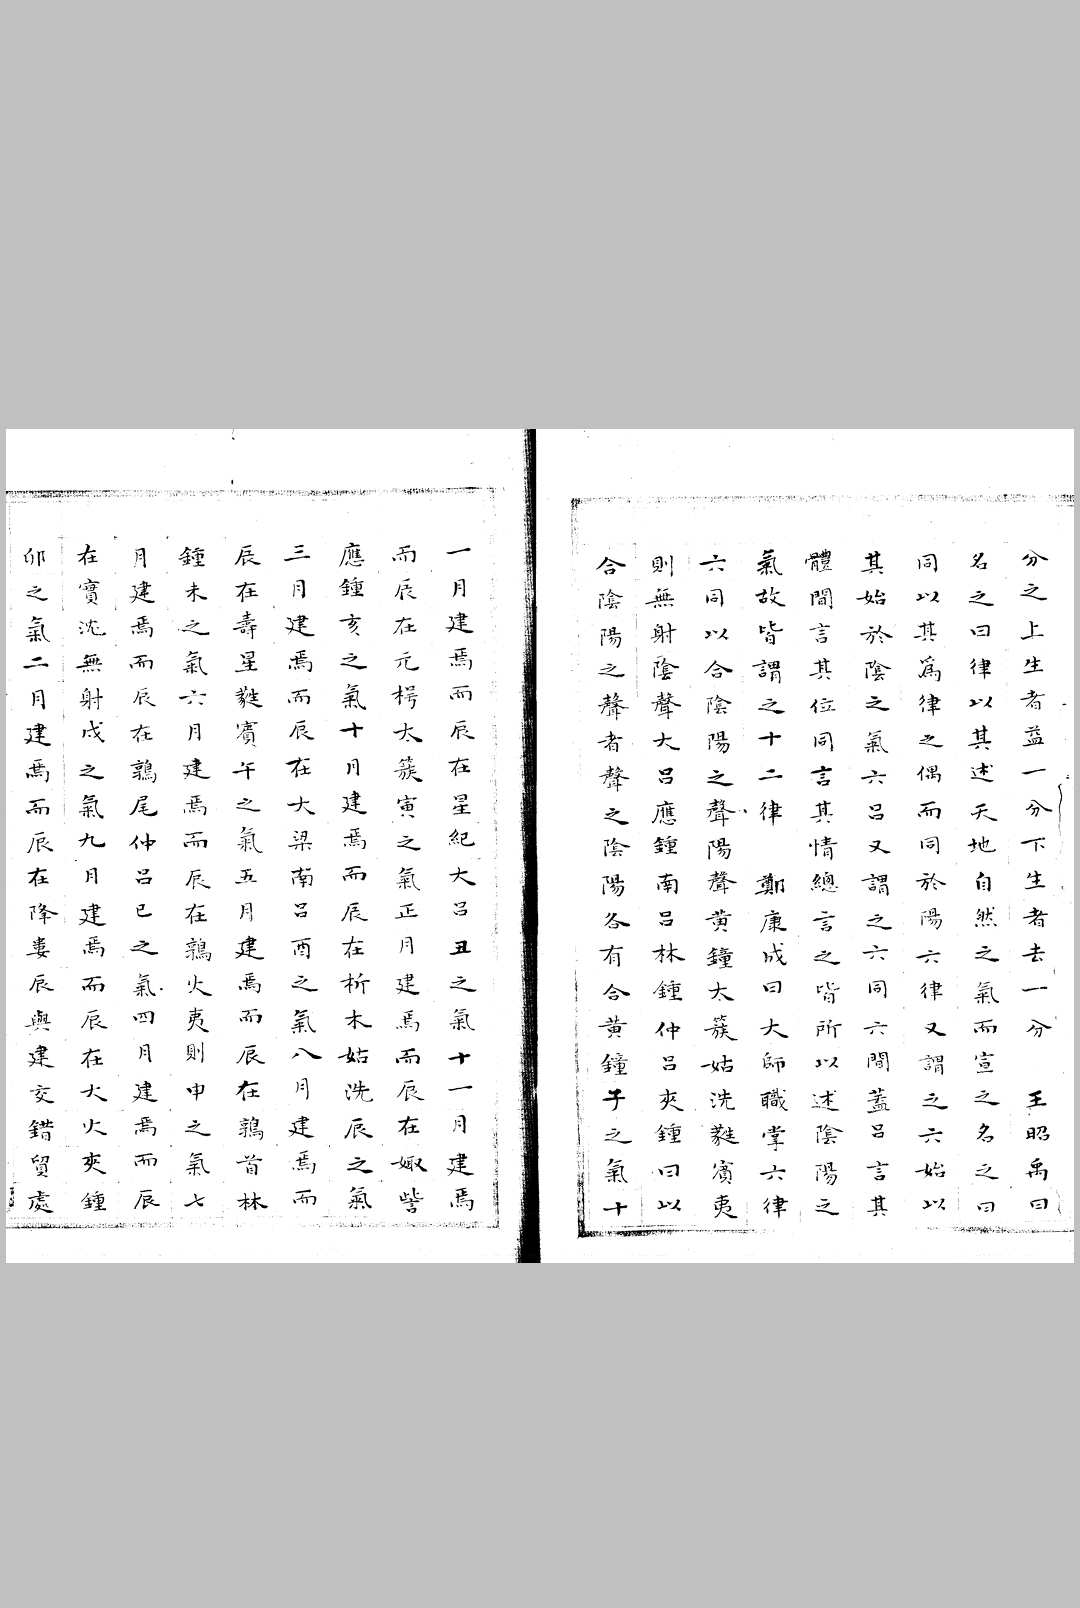 分之上生者益一分下生者去一分　王昭禹曰
名之曰律以其述天地自然之氣而宣之名之曰
同以其爲律之偶而同於陽六律又謂之六始以
其始於陰之氣六呂又謂之六同六間蓋呂言其
體間言其位同言其情總言之皆所以述陰陽之
氣故皆謂之十二律　鄭康成曰大師職掌六律
六同以合陰陽之聲陽聲黄鐘太簇姑洗蕤賓夷
則無射陰聲大呂應鍾南呂林鍾仲呂夾鍾曰以
合陰陽之聲者聲之陰陽各有合黄鐘子之氣十
一月建焉而辰在星紀大呂丑之氣十一月建焉
而辰在元枵太簇寅之氣正月建焉而辰在娵訾
應鍾亥之氣十月建焉而辰在析木姑洗辰之氣
三月建焉而辰在大梁南呂酉之氣八月建焉而
辰在壽星蕤賓午之氣五月建焉而辰在鶉首林
鍾未之氣六月建焉而辰在鶉火夷則申之氣七
月建焉而辰在鶉尾仲呂巳之氣四月建焉而辰
在實沈無射戌之氣九月建焉而辰在大火夾鍾
卯之氣二月建焉而辰在降婁辰與建交錯貿處